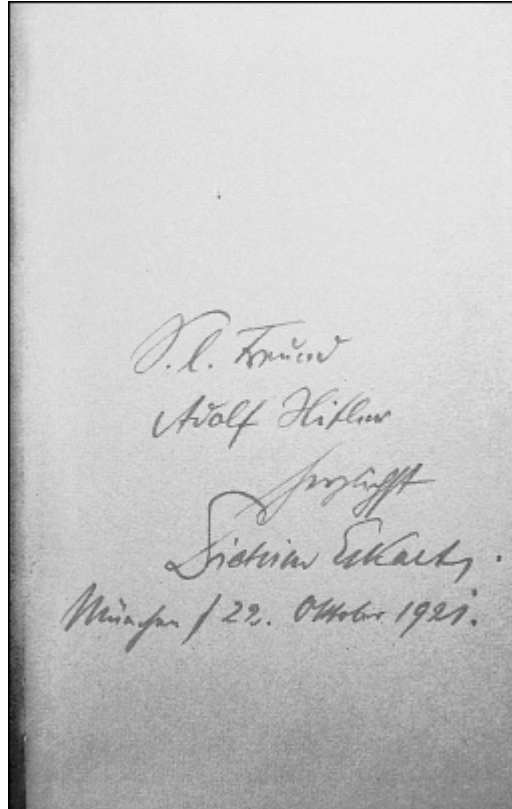 S. l. Freund
Adolf Hitler
herzlichst
Dietrich Eckart.
München / 22. Oktober 1921.